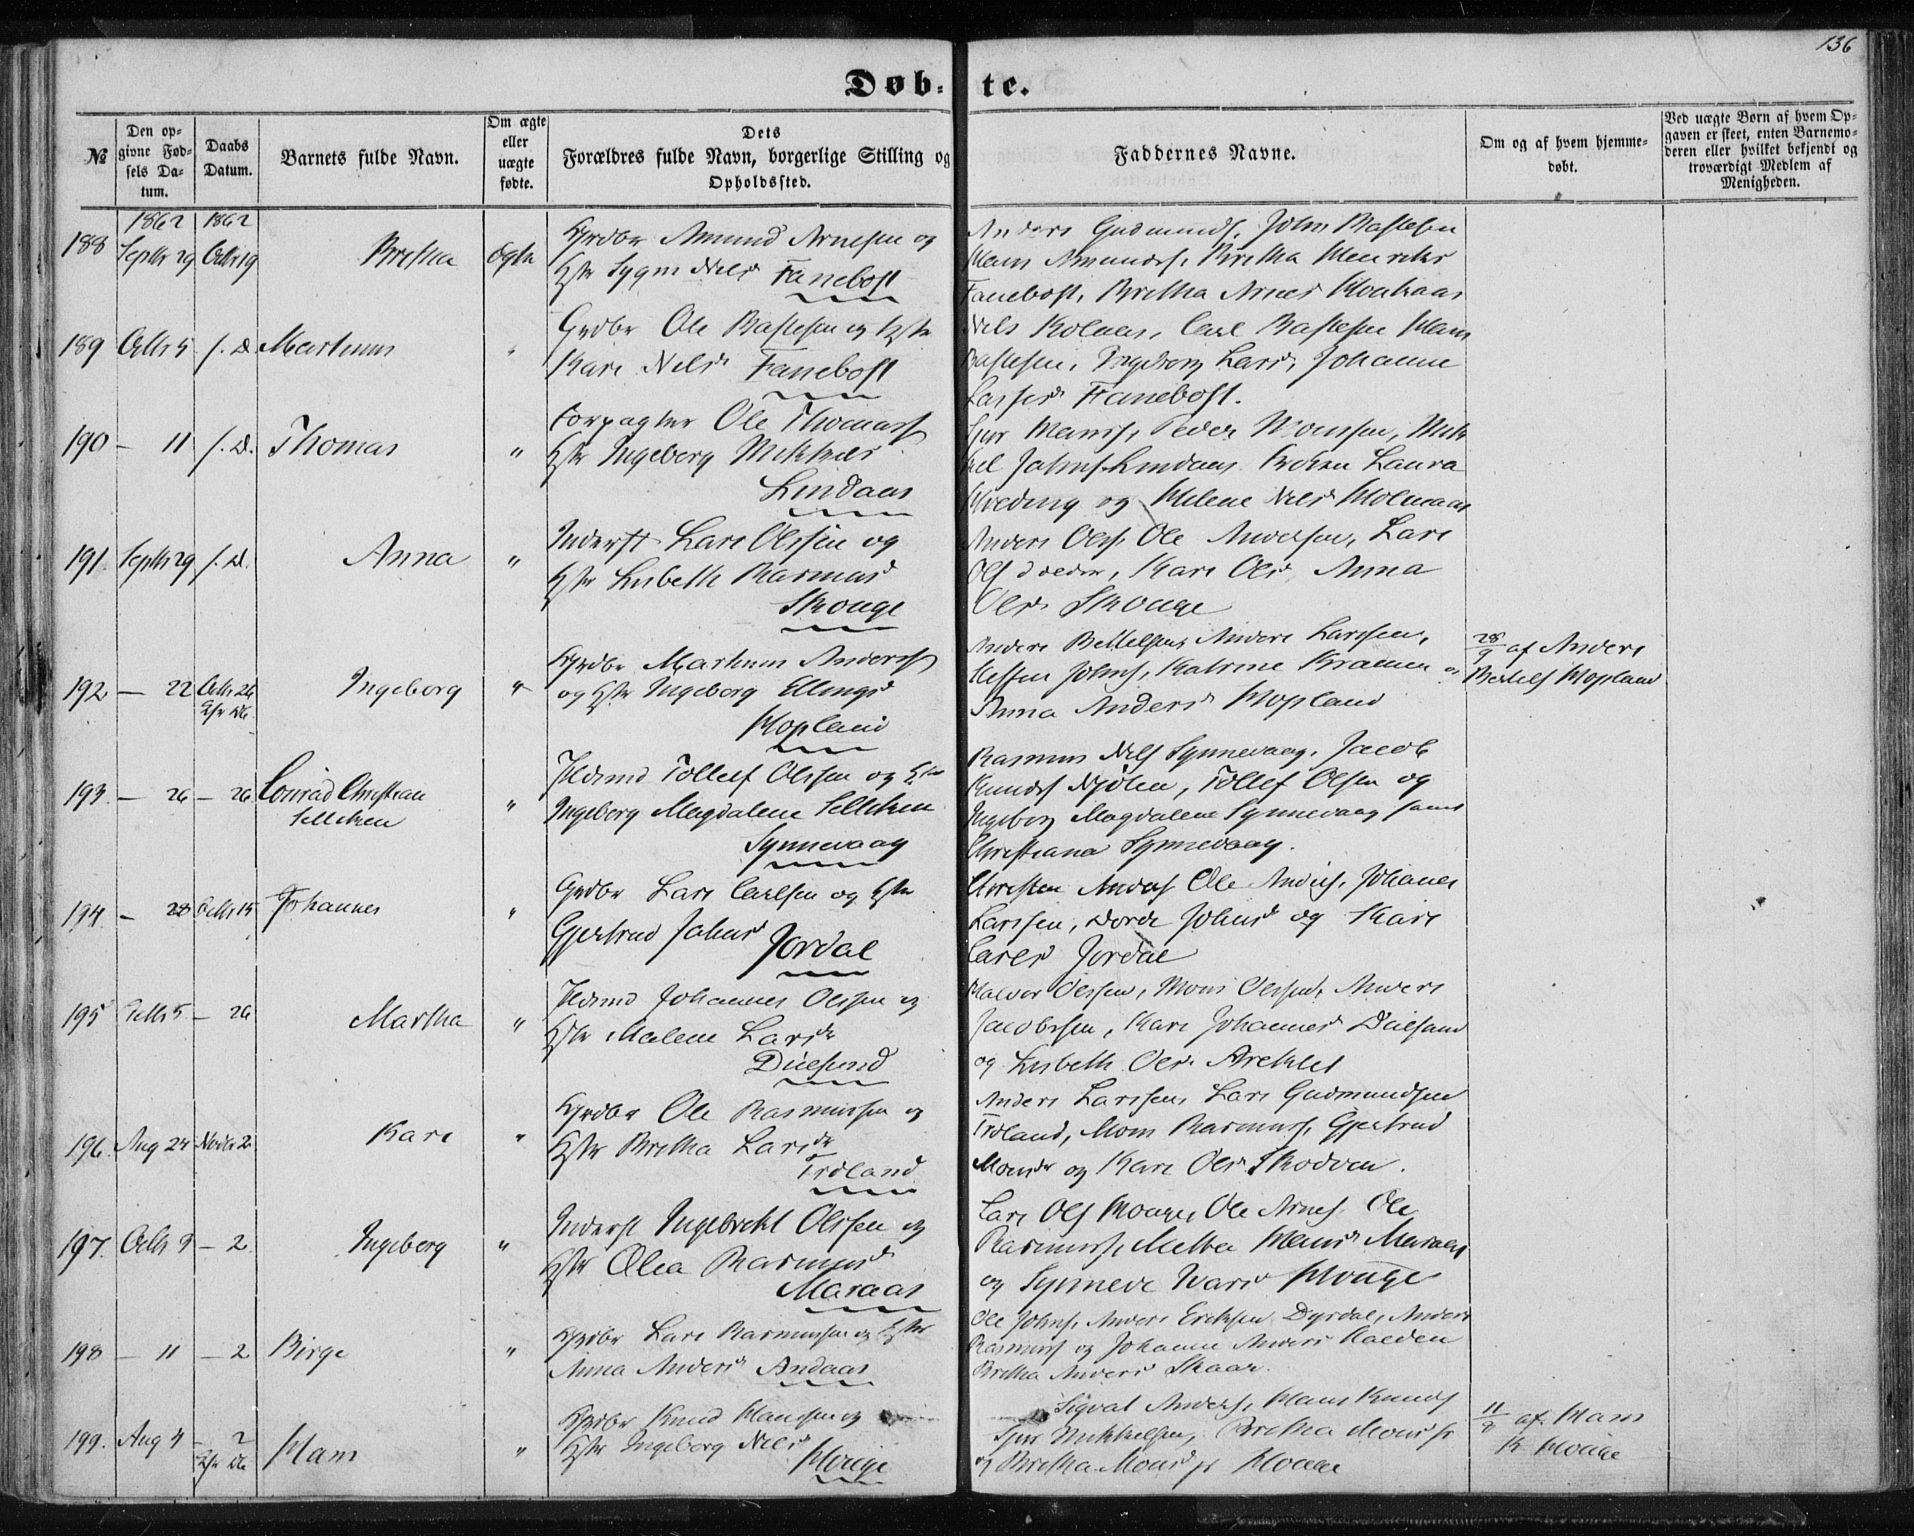 136
Døb-te.
№
Den op-
givne Fød-
sels Da-
tum.
Daabs
Datum.
Barnets fulde Navn.
Om ægte
eller
uægte
fødte.
Dets
Forældres fulde Navn, borgerlige Stilling og
Opholdssted.
Faddernes Navne.
Om og af hvem hjemme-
døbt.
Ved uægte Børn af hvem Op-
gaven er skeet, enten Barnemo-
deren eller hvilket bekjendt og
troværdigt Medlem af
Menigheden.
1862 1862
188 Septbr 29 Octbr 19 Bretha ægte
Amund Arnesen og
Nilsd Fanebost
Anders Gudmunds. John Bastesen
Hans Amunds. Bretha Henriks
Fanebost, Bretha Arnes
189 Octbr 5 s. D. Martinus "
Grdbr Ole Bastesen og Hstr
Kari Nilsd Fanebost
Nils Carl Bastesen Hans
Bastesen, Ingeborg Larsd, Johanne
Lassesd Fanebost.
190 - 11 s. D. Thomas "
Forpagter Ole Thomass
Hstr Ingeborg Mikkels
Lindaas
Sjur Mons. Peder Monsen, Mik
kel Johns. Lindaas Laura
og Helene Nilsd
191. Septbr 29 s. D. Anna "
Inderst Lars Olssen og
Hstr Lisbeth Rasmusd
Skouge
Anders Ols. Ole Andersen, Lars
Ols Kari Olsd, Anna
Olsd Skouge
192 - 22 Octbr 26 Ingeborg "
Martinus Anderss
og Hstr Ingeborg Ellingsd
Hopland
Anders Bertelsen, Anders Larssen,
Steffen Johns, Katrine Kramer og
Anna Andersd Hopland
28/9 af Anders
Bertels Hopland
193. - 26 - 26 Conrad Christian
Selleken "
Tollef Olssen og Hstr
Ingeborg Magdalene Selleken
Synnevaag
Rasmus Nils Synnevaag. Jacob
Knuds Njølen, Tollef Olsen og
Ingeborg Magdalene Synnevaag samt
Christiana Synnevaag.
194 - 28 Octbr 15 Johannes "
Grdbr Lars Carlsen og Hstr
Gjertrud Johnsd Jordal
Christen Anders Ole Anders. Johanes
Larssen, Dorde Johnsd og Kari
Carlsd Jordal
195 Octbr 5 - 26 Martha "
Johannes Olssen og
Hstr Malene Larsd
Duesund
Halvor Olssen, Mons Olssen, Anders
Jacobssen, Kari Johannesd Duesund
og Lisbeth Olsd
196. Aug 24 Novbr 2 Kari "
Ole Rasmussen og
Hstr Bretha Larsd
Troland
Anders Larssen, Lars Gudmundsen
Troland, Mons Rasmus. Gjertrud
Monsd og Kari Olsd Skodven.
197. Octbr 9 - 2 Ingeborg "
Inderst Ingebrekt Olssen og
Hstr Olea Rasmusd
Maraas
Lars Ols Houge, Ole Arnes. Ole
Rasmuss. Hansd Maraas
og Synneve Ivarsd Houge
198 - 11 - 2 Birge "
Lars Rasmussen og Hstr
Anna Andersd Andaas
Ole Johns. Anders Eriksen Dyrdal, Anders
Rasmuss og Johanne Anders
Bretha Anders Skaar.
199. Aug 4 - 2 Hans "
Knud Hanssen og
Hstr Ingeborg Nilsd
Houge
Sigvat Anders. Hans Knuds
Sjur Mikkelsen, Bretha Mons
og Bretha Mons Houge
11/8 af Hans
K Houge